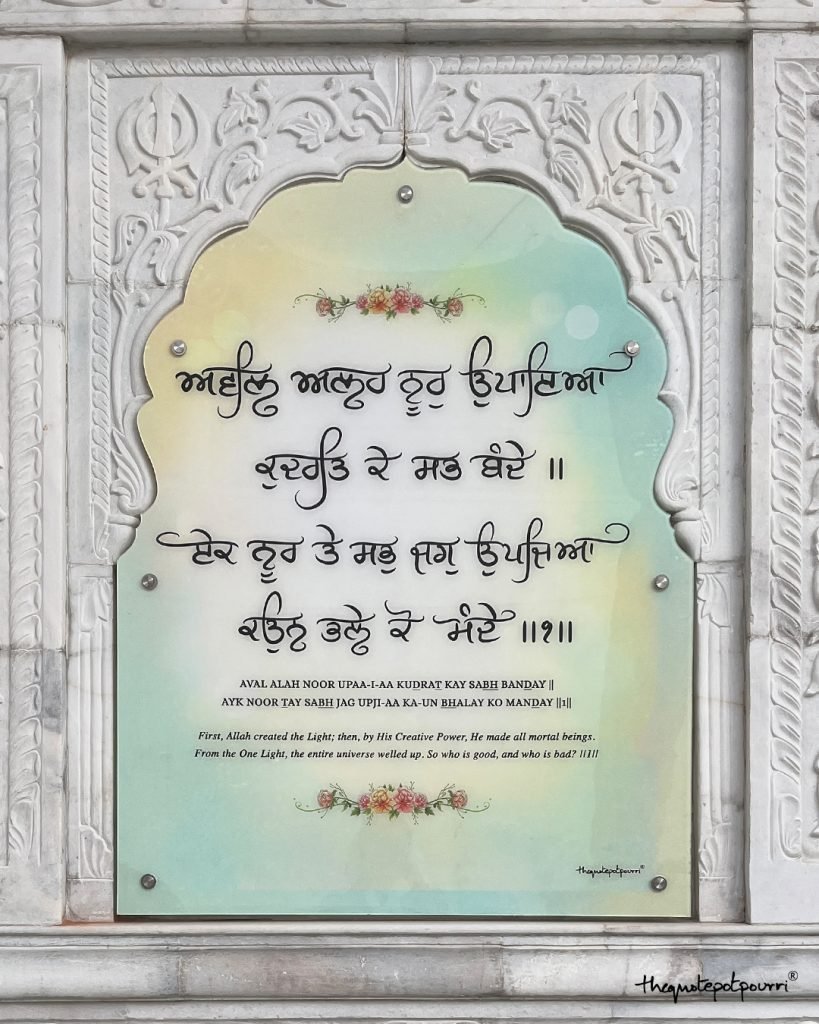 ਅਵਲਿ ਅਲਹ ਨੂਰੁ ਉਪਾਇਆ
ਕੁਦਰਤਿ ਕੇ ਸਭ ਬੰਦੇ ॥
ਏਕ ਨੂਰ ਤੇ ਸਭੁ ਜਗੁ ਉਪਜਿਆ
ਕਉਨ ਭਲੇ ਕੋ ਮੰਦੇ ॥੧॥
AVAL ALAH NOOR UPAA-I-AA KUDRAT KAY SABH BANDAY ||
AYK NOOR TAY SABH JAG UPJI-AA KA-UN BHALAY KO MANDAY ||1||
First, Allah created the Light; then, by His Creative Power, He made all mortal beings.
From the One Light, the entire universe welled up. So who is good, and who is bad? ||1||
thequotepotpourri®
thequotepotpourri®